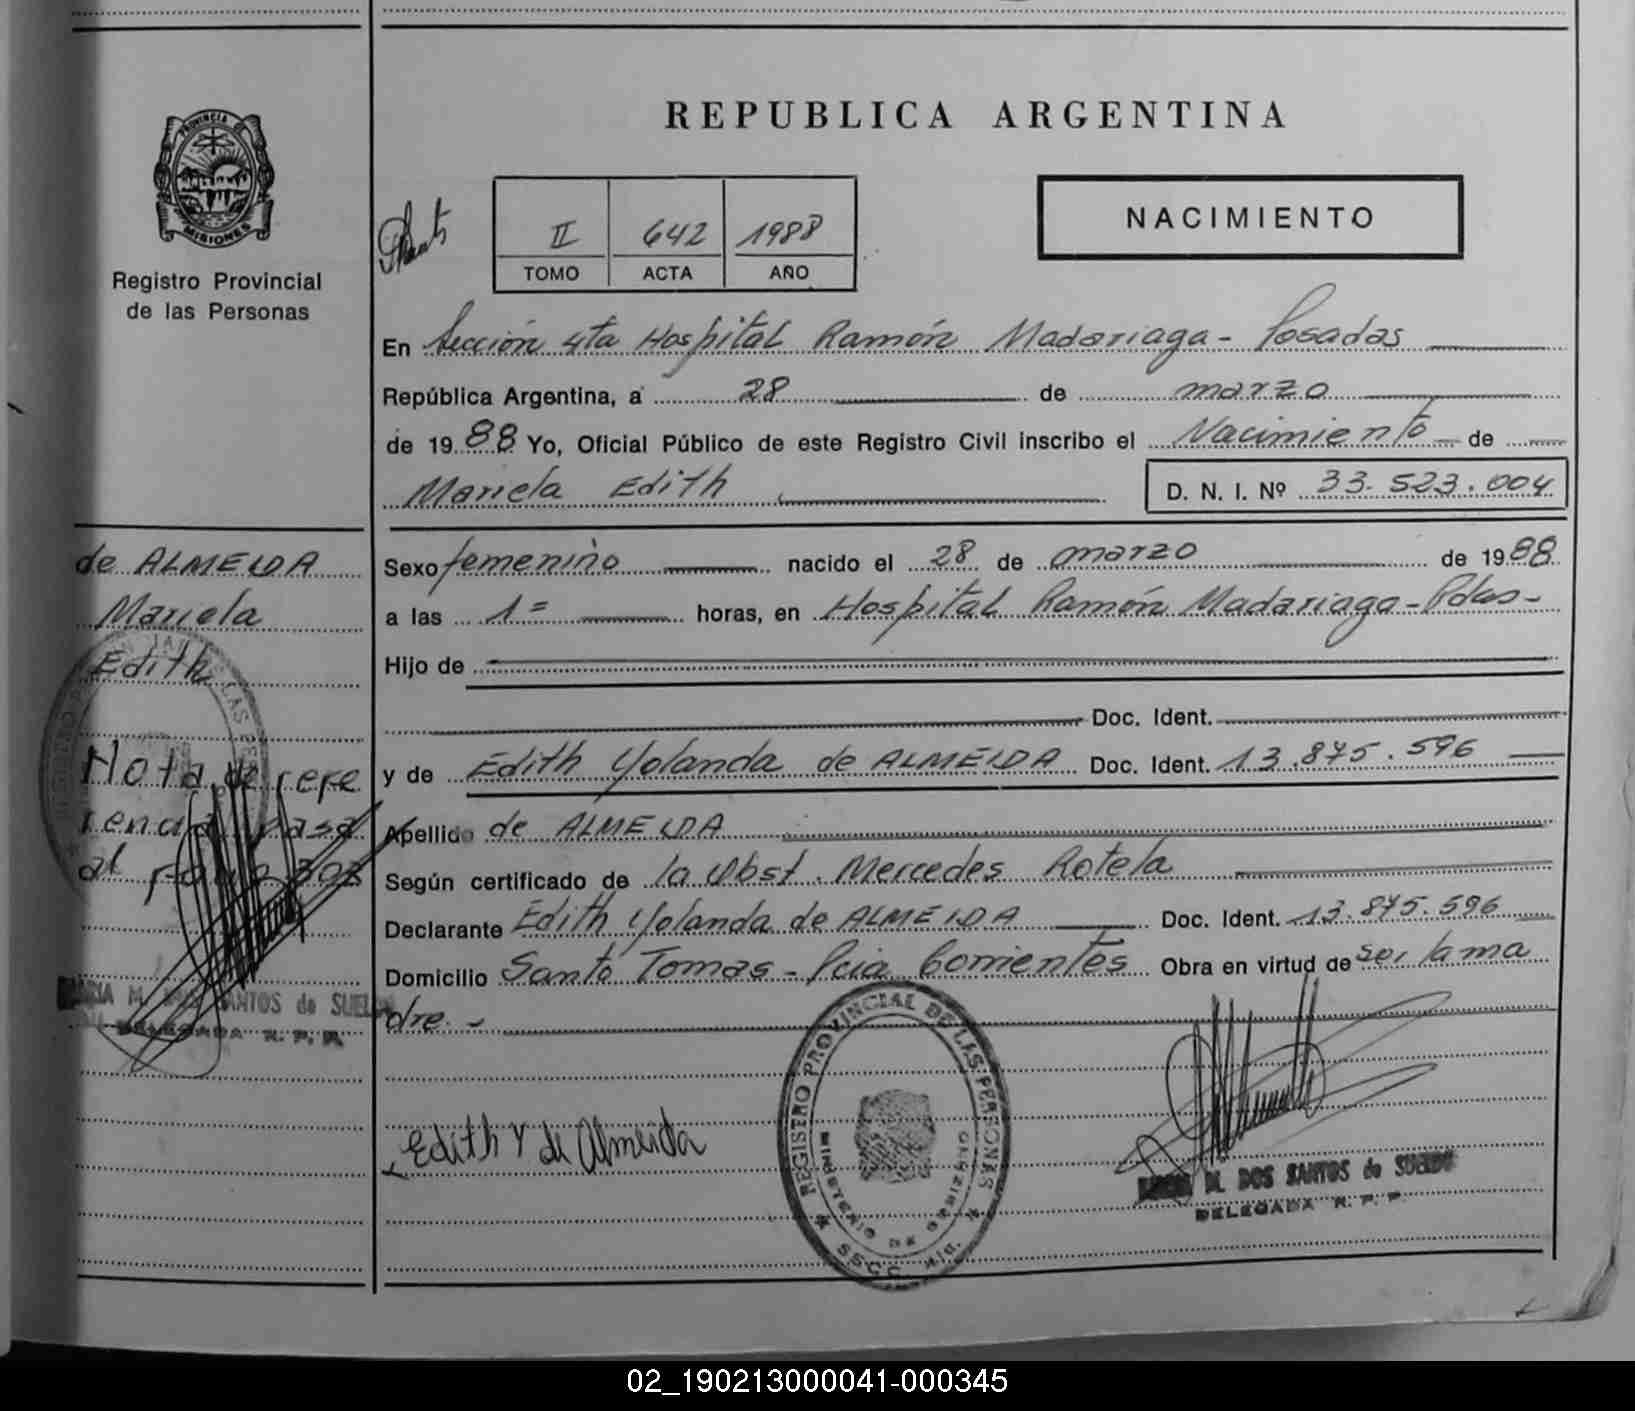 REPUBLICA ARGENTINA
PROVINCIA DE
MISIONES
Registro Provincial
de las Personas
II 642 1988
TOMO ACTA AÑO
NACIMIENTO
En Sección 4ta Hospital Ramón Madariaga - Posadas
República Argentina, a 28 de marzo
de 1988 Yo, Oficial Público de este Registro Civil inscribo el Nacimiento de
Mariela Edith D. N. I. Nº 33.523.004
de ALMEIDA
Mariela
Edith
Nota de refe
rencia pasa
al folio
DOS SANTOS de SUELDO
DELEGADA R. P. P.
Sexo femenino nacido el 28 de marzo de 1988
a las 1= horas, en Hospital Ramón Madariaga - Pdas -
Hijo de
Doc. Ident.
y de Edith Yolanda de ALMEIDA Doc. Ident. 13.875.596
Apellido de ALMEIDA
Según certificado de la Obst. Mercedes Rotela
Declarante Edith Yolanda de ALMEIDA Doc. Ident. 13.875.596
Domicilio Santo Tomas - Pcia Corrientes Obra en virtud de ser la ma
dre. -
Edith Y de Almeida
REGISTRO PROVINCIAL DE LAS PERSONAS
MINISTERIO DE
M. DOS SANTOS de SUELDO
DELEGADA R. P. P.
02_190213000041-000345